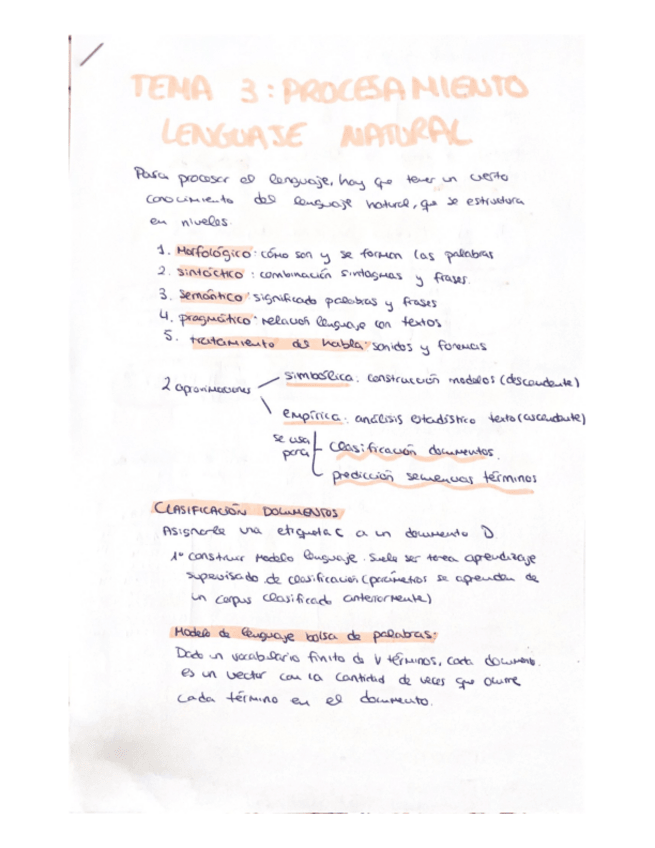 TEMA 3: PROCESAMIENTO
LENGUAJE NATURAL
Para procesar el lenguaje, hay que tener un cierto
conocimiento del lenguaje natural, que se estructura
en niveles.
1. Morfológico: cómo son y se forman las palabras
2. sintáctico: combinación sintagmas y frases.
3. semántico: significado palabras y frases
4. pragmático: relación lenguaje con textos
5. tratamiento del habla: sonidos y fonemas
2 aproximaciones
simbólica: construcción modelos (descendente)
empírica: análisis estadístico texto (ascendente)
se usa para
clasificación documentos.
predicción secuencias términos
CLASIFICACIÓN DOCUMENTOS
Asignarle una etiqueta C a un documento D.
1º construir modelo lenguaje. Suele ser tarea aprendizaje
supervisado de clasificación (parámetros se aprenden de
un corpus clasificado anteriormente)
Modelo de lenguaje bolsa de palabras:
Dado un vocabulario finito de V términos, cada documento.
es un vector con la cantidad de veces que ocurre
cada término en el documento.